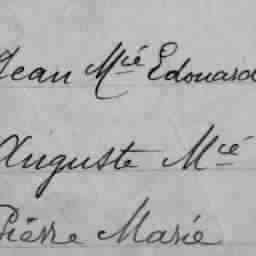 Jean Mcié Edouard
Auguste Mcié
Pierre Marie